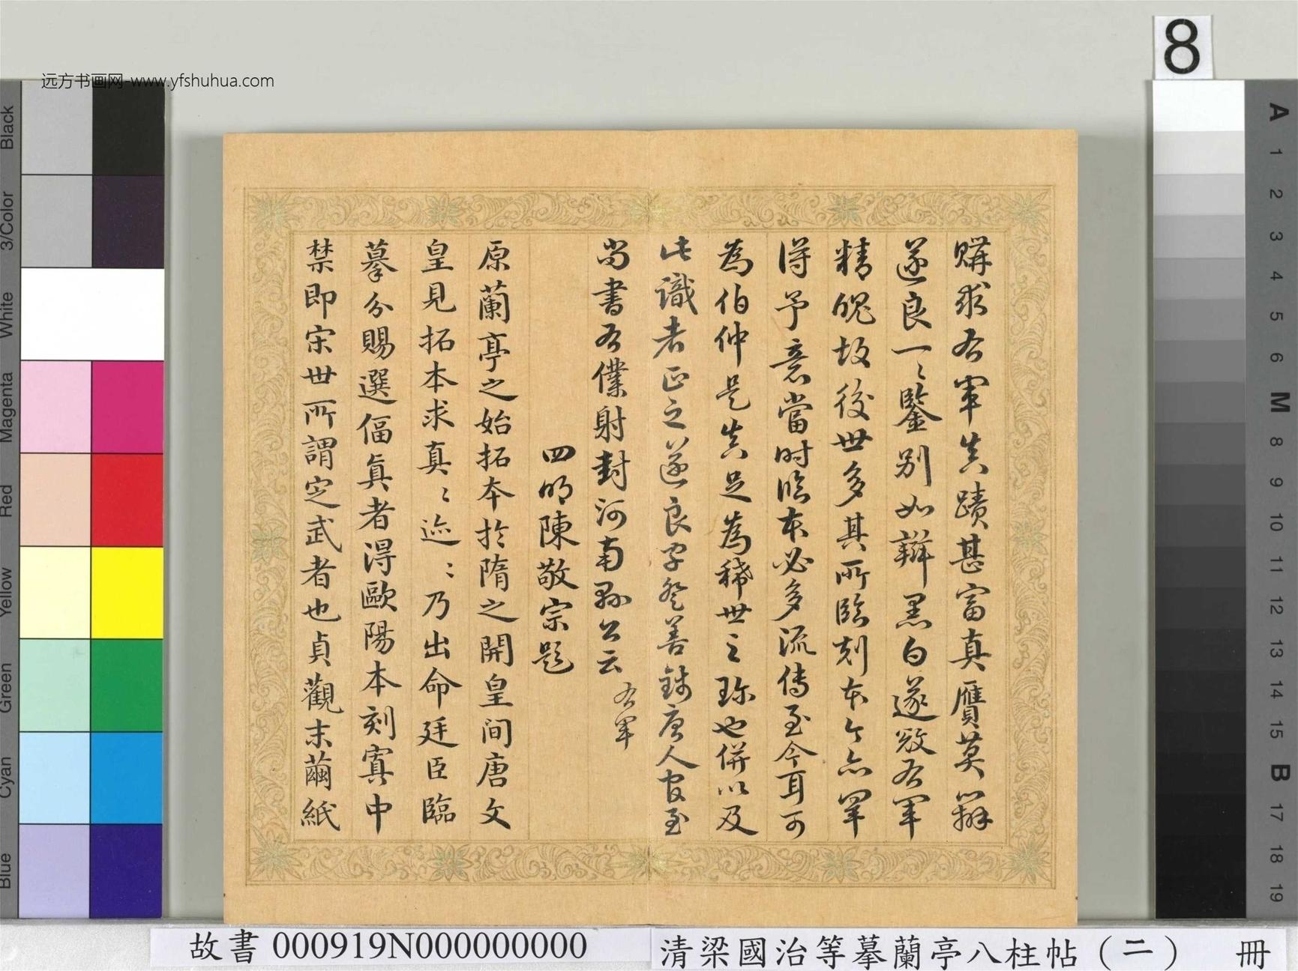 远方书画网-www.yfshuhua.com
8
購求右軍真蹟甚富真贗莫辨
遂良一〻鑒别如辯黑白遂發右軍
精魄故後世多其所臨刻本今亦罕
得予意當时臨本必多流傳至今耳可
為伯仲是真足為稀世之珎也併以及
此識者正之遂良字登善錢唐人官至
尚書右僕射封河南縣公云 右軍
四明陳敬宗題
原蘭亭之始拓本於隋之開皇间唐文
皇見拓本求真〻迹〻乃出命廷臣臨
摹分賜選偪真者得歐陽本刻寘中
禁即宋世所謂定武者也貞觀末繭紙
故書 000919N000000000
清梁國治等摹蘭亭八柱帖（二） 冊
Black
3/Color
White
Magenta
Red
Yellow
Green
Cyan
Blue
A
1
2
3
4
5
6
M
8
9
10
11
12
13
14
15
B
17
18
19